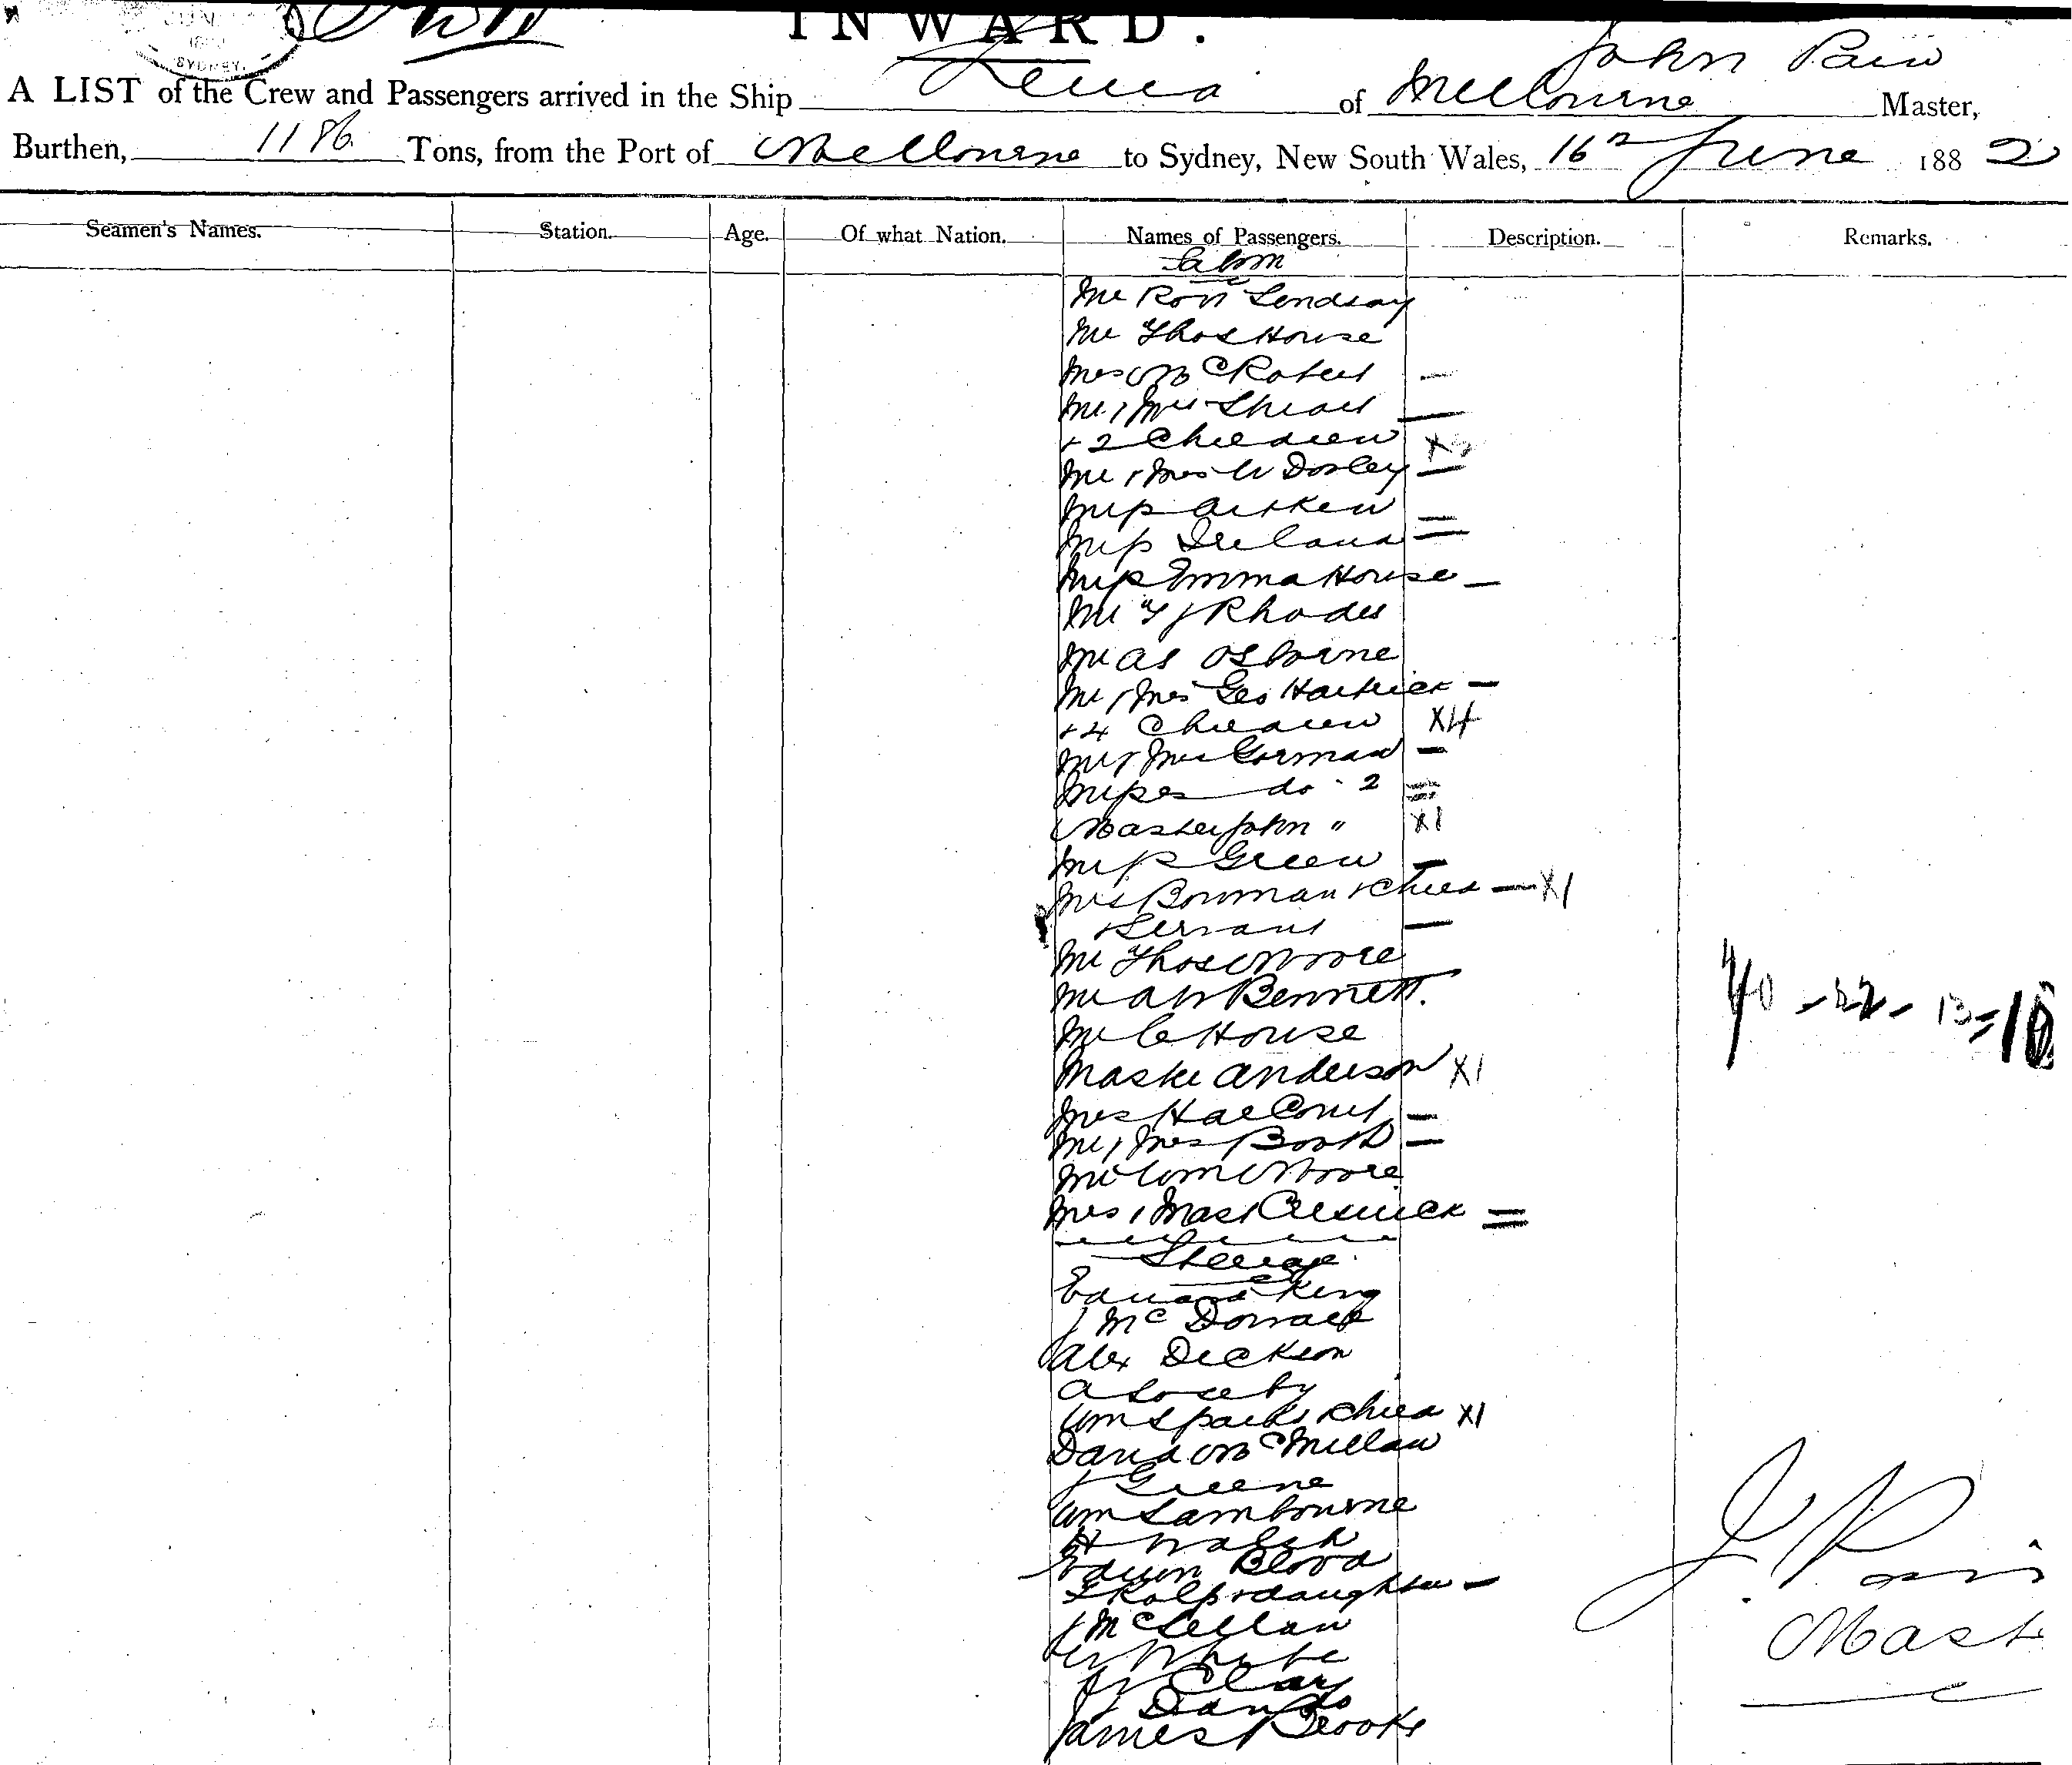 INWARD.
John Pain
A LIST of the Crew and Passengers arrived in the Ship of Melbourne Master,
Burthen, 1186 Tons, from the Port of Melbourne to Sydney, New South Wales, 16th June 1882
Seamen's Names. Station. Age. Of what Nation. Names of Passengers. Description. Remarks.
Saloon
Mr Robt Lindsay
Mr Thos House
Mrs McRobert —
Mr & Mrs —
+ 2 Children X2
Mr & Mrs W Dooley —
Miss Aitken —
Miss Ireland —
Miss Emma House —
Mr T J Rhodes
Mr As Osborne
Mr & Mrs Geo Hartrick —
+ 4 Children X4
Mr & Mrs Gorman —
Misses do 2 =
Master John " X1
Miss Green —
Mrs Bowman & Child — X1
& Servant —
Mr Thos Moore
Mr A W Bennett.
Mr C House
Master Anderson X1
Mrs Harcourt —
Mr & Mrs Booth —
Mr Wm Moore
Mrs & Mast Creswick =
Steerage
Edward King
J McDonald
Alex Dickson
A Soceby
Wm Sparks & Child X1
David McMillan
J Greene
Wm Lambourne
H Walsh
Edwin Blood
& daughter —
J McLellan
W White
Clay
J
James Brooks
40 - 22 - 13 = 10
J Pain
Mast